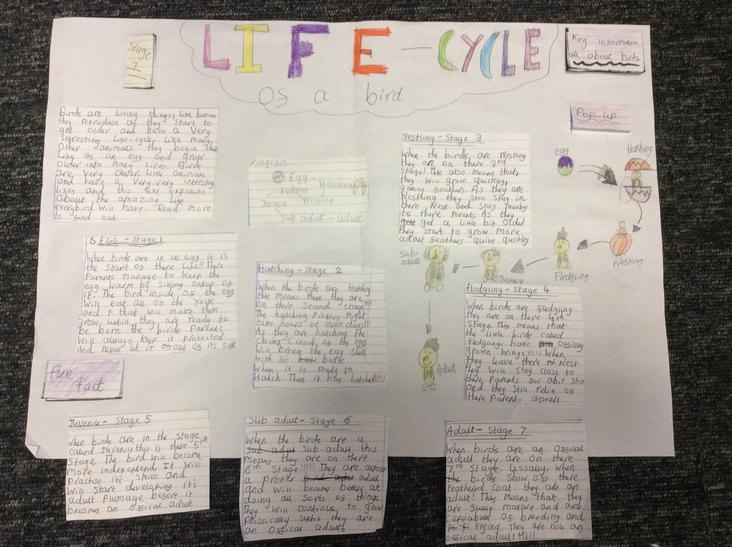 Stage
LIFE-CYCLE
Of a bird
Key information
all about birds
Pop-up
Birds are living things, like humans
they reproduce as they start to
get older and have a very
interesting life-cycle. Like many
other animals they begin their
life as an egg and grow
older into many sizes. Birds
are very clever little animals
and have a very very interesting
lives and this text explains
about the amazing life
everybird will have. Read more
to find out
Diagram
Egg
Hatching
Juvenile
Sub adult - adult
Nestling - Stage 3
When the birds are Nestling
they are on there 3rd
Stage! This also means that
they will grow quickly
gaining feathers. As they are
Nestling they still stay in
there Nest and stay nearby
to there Parents. As they
get a little bit older
They start to grow more
adult feathers quite quickly
egg
Hatching
Nestling
Fledgling
Juvenile
Sub-adult
Adult
EGG - Stage 1
When birds are in an egg it is
the start of there life!! There
Parents manage to keep the
egg warm by sitting ontop of
it. The bird inside of the egg
will eat all of the yolk
and that will make them
grow, until they are ready to
be born. The birds Parents
will always keep it protected
and never let it out of its sight
Hatching - Stage 2
When the birds are Hatching
this means that they are
on there second stage!!!
The hatching process might
take hours or even days!!!
As they are hatching the
Chicks inside of the egg
will break the egg shell
with its birds
When it is ready to
Hatch. Then it has hatched!!!!
Fledgling - Stage 4
When birds are fledgling
they are on there 4th
Stage. This means that
the little birds called
fledglings have officaly
grown wings!!!!! When
they leave there Nest
they will stay close to
there Parents for abit still
and they still relie on
there Parents aswell
Fun
Fact
Juvenile - Stage 5
When birds are in the stage
called Juvenile this is there 5th
Stage. The bird will become
more independend. It will
Practise its skills and
will start developing its
adult Plumage before it
becomes an offical adult
Sub adult - Stage 6
When the birds are a
sub adult Sub-adult this
means they are on there
6th Stage!!!!! They are almost
a proper adult
and will become better at
doing all sorts of things
They will continue to grow
Phisicaly until they are
an offical adult
Adult - Stage 7
When birds are an offical
adult they are on there
7th Stage. Usually when
the birds show off there
feathered coat they are an
adult! This means that they
are fully mature and are
capeabul of breeding and
Flying. They are now an
offical adult!!!!